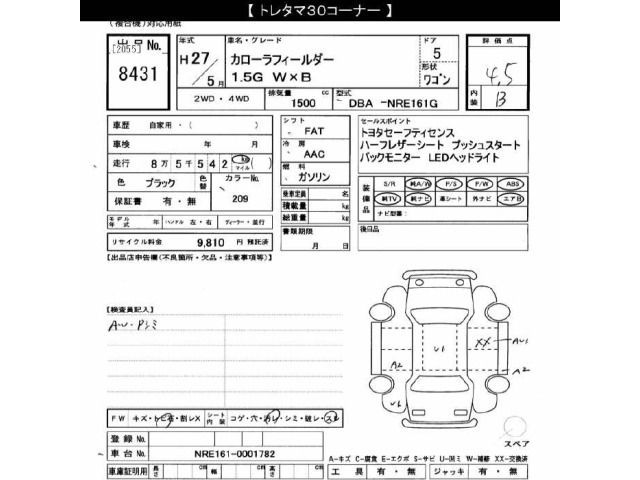 【 トレタマ30コーナー 】
(複合機)対応用紙
出品 No.
[2055]
8431
年式
H 27
5 月
車名・グレード
カローラフィールダー
1.5G W×B
ドア
5
形状
ワゴン
評価点
4.5
内装 B
2WD ・ 4WD
排気量 1500 cc
型式 DBA -NRE161G
車歴 自家用・( )
車検 年 月
走行 8 万 5 千 542 km マイル ( )
色 ブラック 色替 カラーNo. 209
保証書 有 ・ 無
モデル年式 年 ハンドル 左・右 ディーラー・並行
リサイクル料金 9,810 円 預託済
シフト FAT
冷房 AAC
燃料 ガソリン
乗車定員 名
積載量 kg
総重量 kg
書類期限
月 日
セールスポイント
トヨタセーフティセンス
ハーフレザーシート プッシュスタート
バックモニター LEDヘッドライト
装備品
S/R 純A/W P/S P/W ABS
純TV 純ナビ 革シート 外ナビ エアB
ナビ型番:
後日品
【出品店申告欄(不良箇所・欠品・注意事項等)】
【検査員記入】
AW・Pシミ
U1
XX
AW1
A2
A2
U6
スペア
FW キズ・トビ石・割レX
シート内装 コゲ・穴・汚レ・シミ・破レ・スレ
登録 No.
車台 No. NRE161-0001782
車庫証明用 長さ cm 幅 cm 高さ cm
A-キズ C-腐食 E-エクボ S-サビ U-凹ミ W-補修 XX-交換済
工具 有 ・ 無 ジャッキ 有 ・ 無